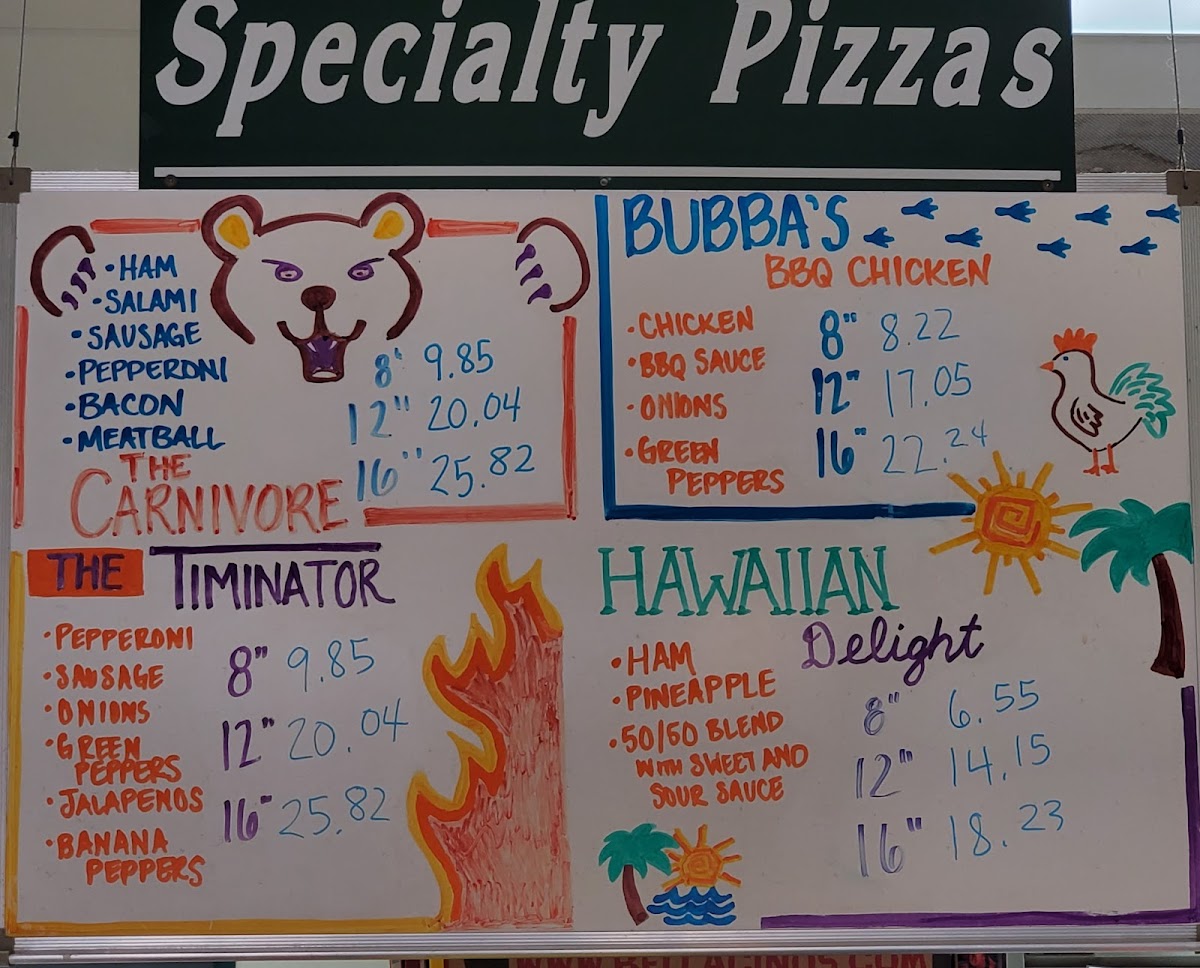 Specialty Pizzas
• HAM
• SALAMI
• SAUSAGE
• PEPPERONI
• BACON
• MEATBALL
8" 9.85
12" 20.04
16" 25.82
THE
CARNIVORE
BUBBA'S
BBQ CHICKEN
• CHICKEN
• BBQ SAUCE
• ONIONS
• GREEN
PEPPERS
8" 8.22
12" 17.05
16" 22.24
THE TIMINATOR
• PEPPERONI
• SAUSAGE
• ONIONS
• GREEN
PEPPERS
• JALAPENOS
• BANANA
PEPPERS
8" 9.85
12" 20.04
16" 25.82
HAWAIIAN
Delight
• HAM
• PINEAPPLE
• 50/50 BLEND
WITH SWEET AND
SOUR SAUCE
8" 6.55
12" 14.15
16" 18.23
WWW.BELLACINOS.COM